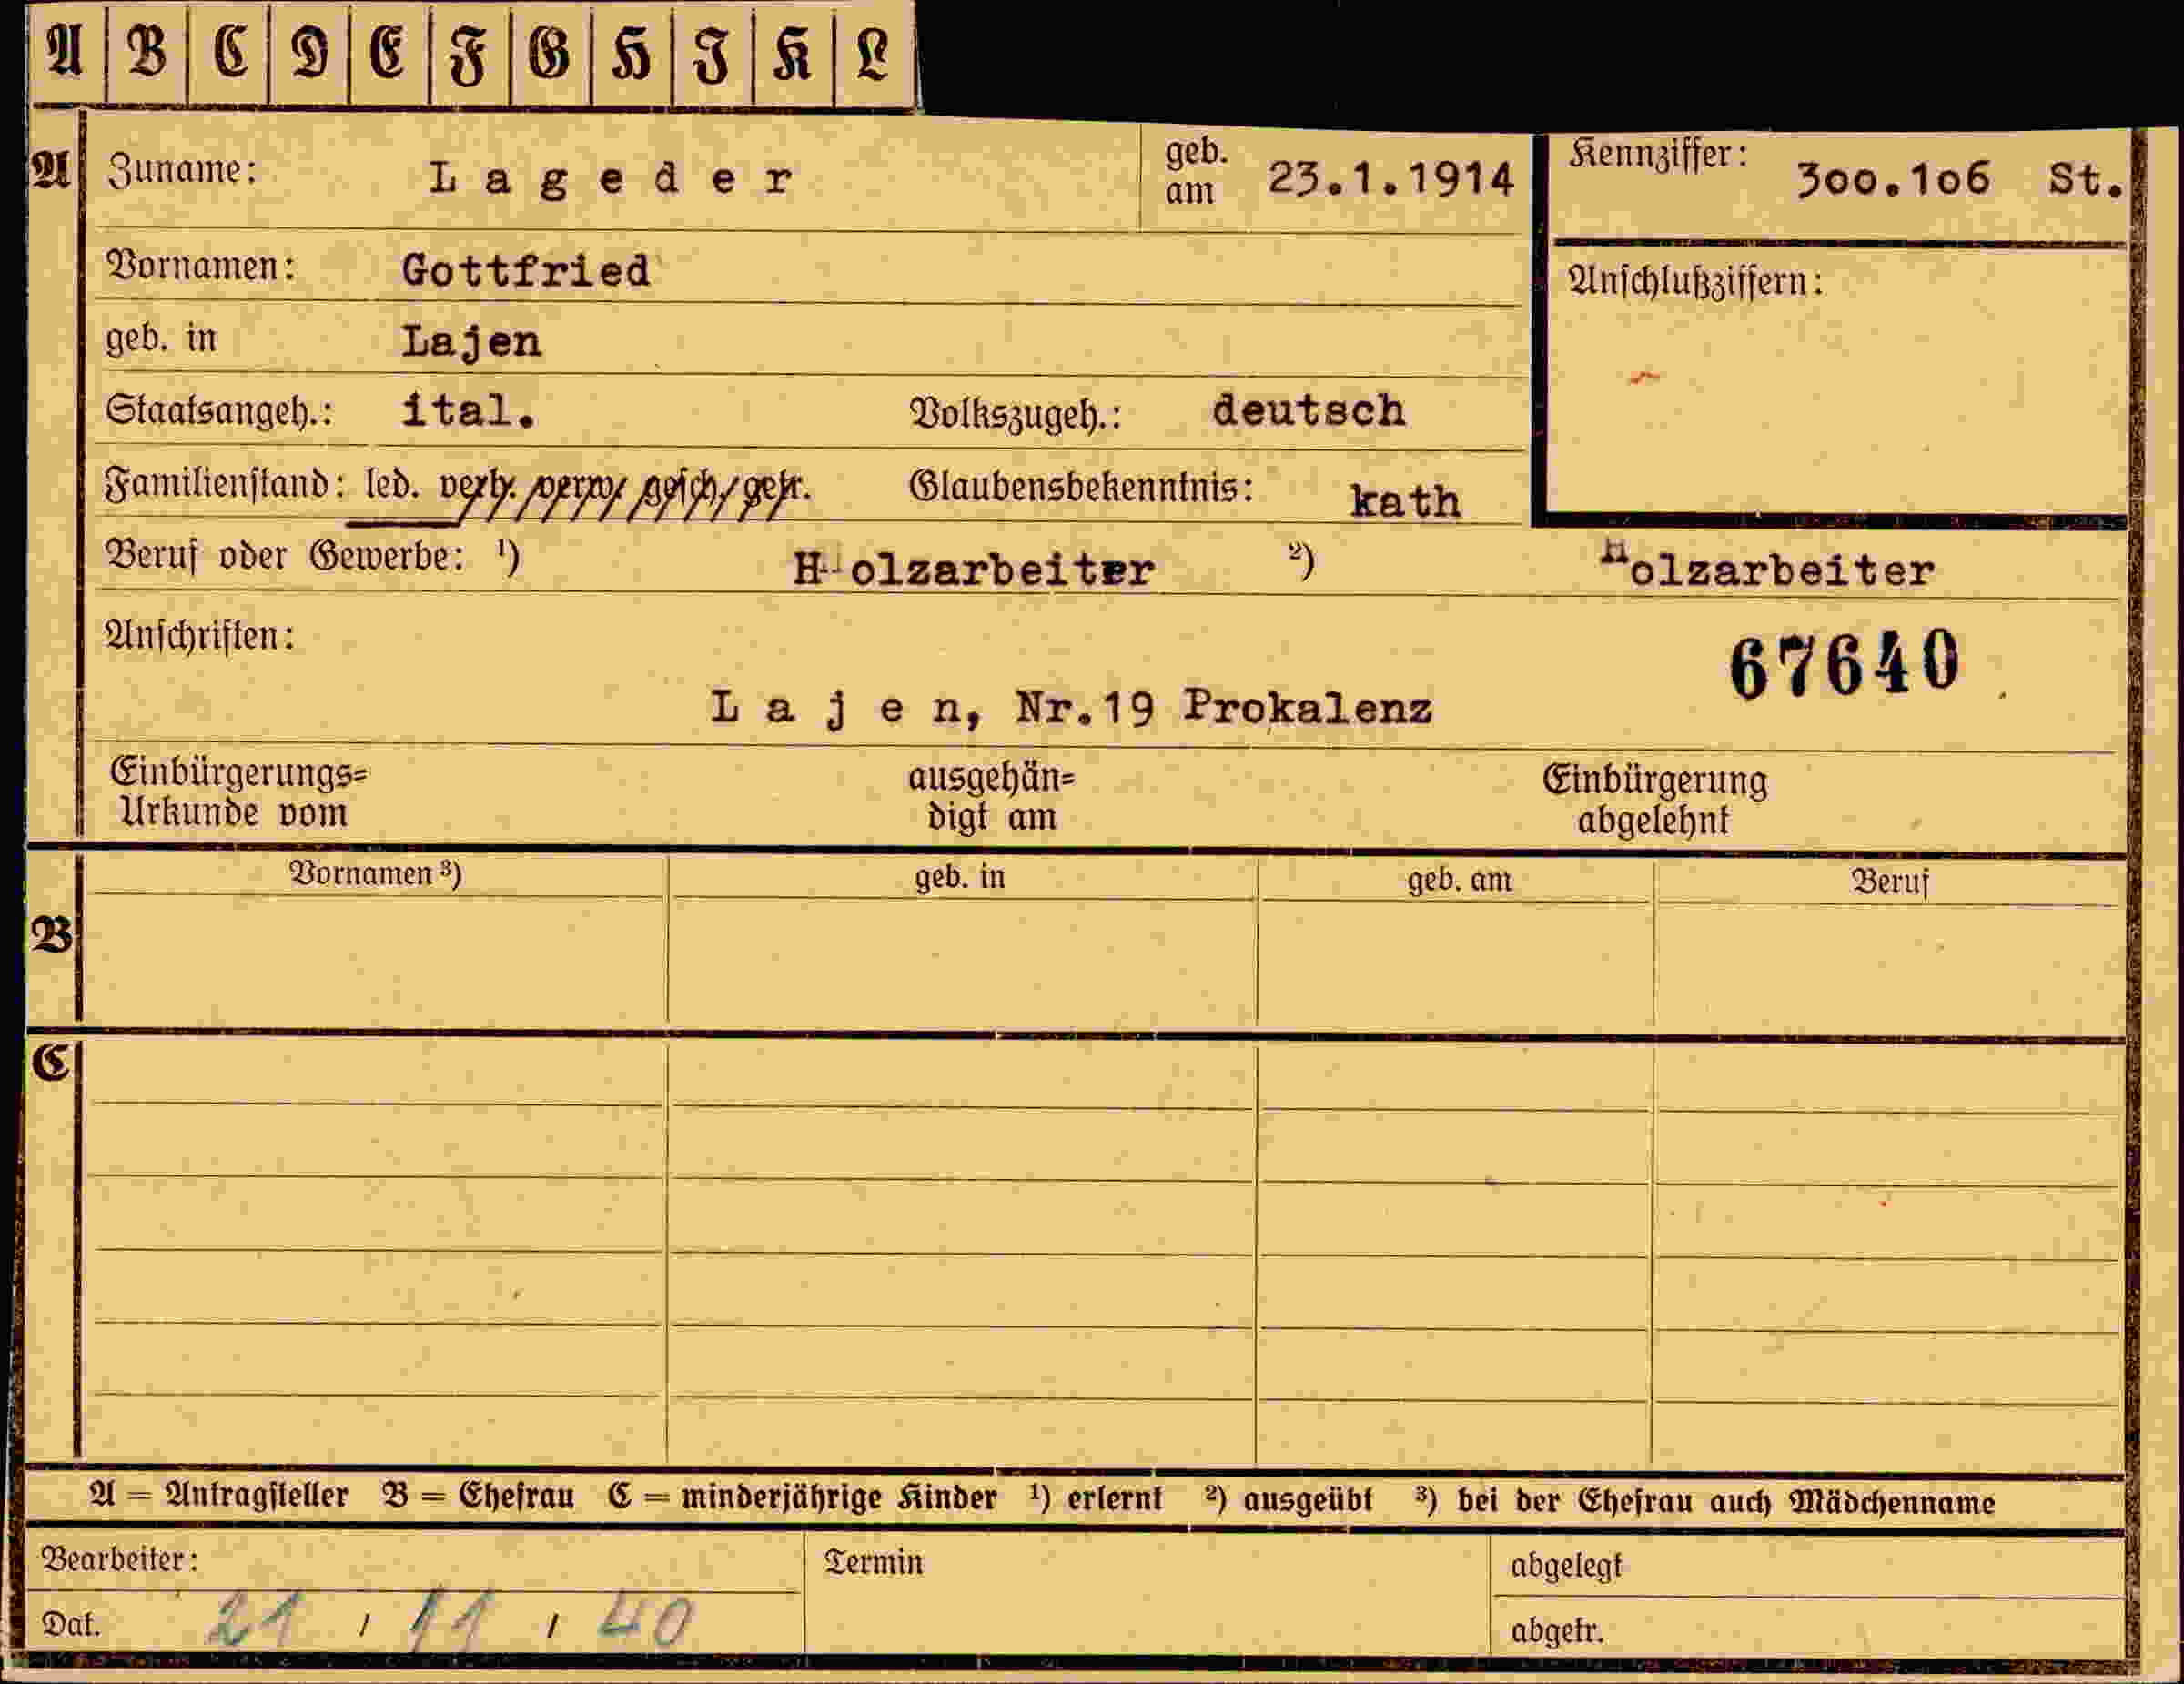 A B C D E F G H I K L
A Zuname: Lageder geb. am 23.1.1914 Kennziffer: 3oo.1o6 St.
Vornamen: Gottfried Anschlußziffern:
geb. in Lajen
Staatsangeh.: ital. Volkszugeh.: deutsch
Familienstand: led. verh. verw. gesch. getr. Glaubensbekenntnis: kath
Beruf oder Gewerbe: ¹) H olzarbeiter ²) Holzarbeiter
Anschriften: 67640
Lajen, Nr.19 Prokalenz
Einbürgerungs= ausgehän= Einbürgerung
Urkunde vom digt am abgelehnt
Vornamen ³) geb. in geb. am Beruf
B
C
A = Antragsteller B = Ehefrau C = minderjährige Kinder ¹) erlernt ²) ausgeübt ³) bei der Ehefrau auch Mädchenname
Bearbeiter: Termin abgelegt
Dat. 21 / 11 / 40 abgetr.